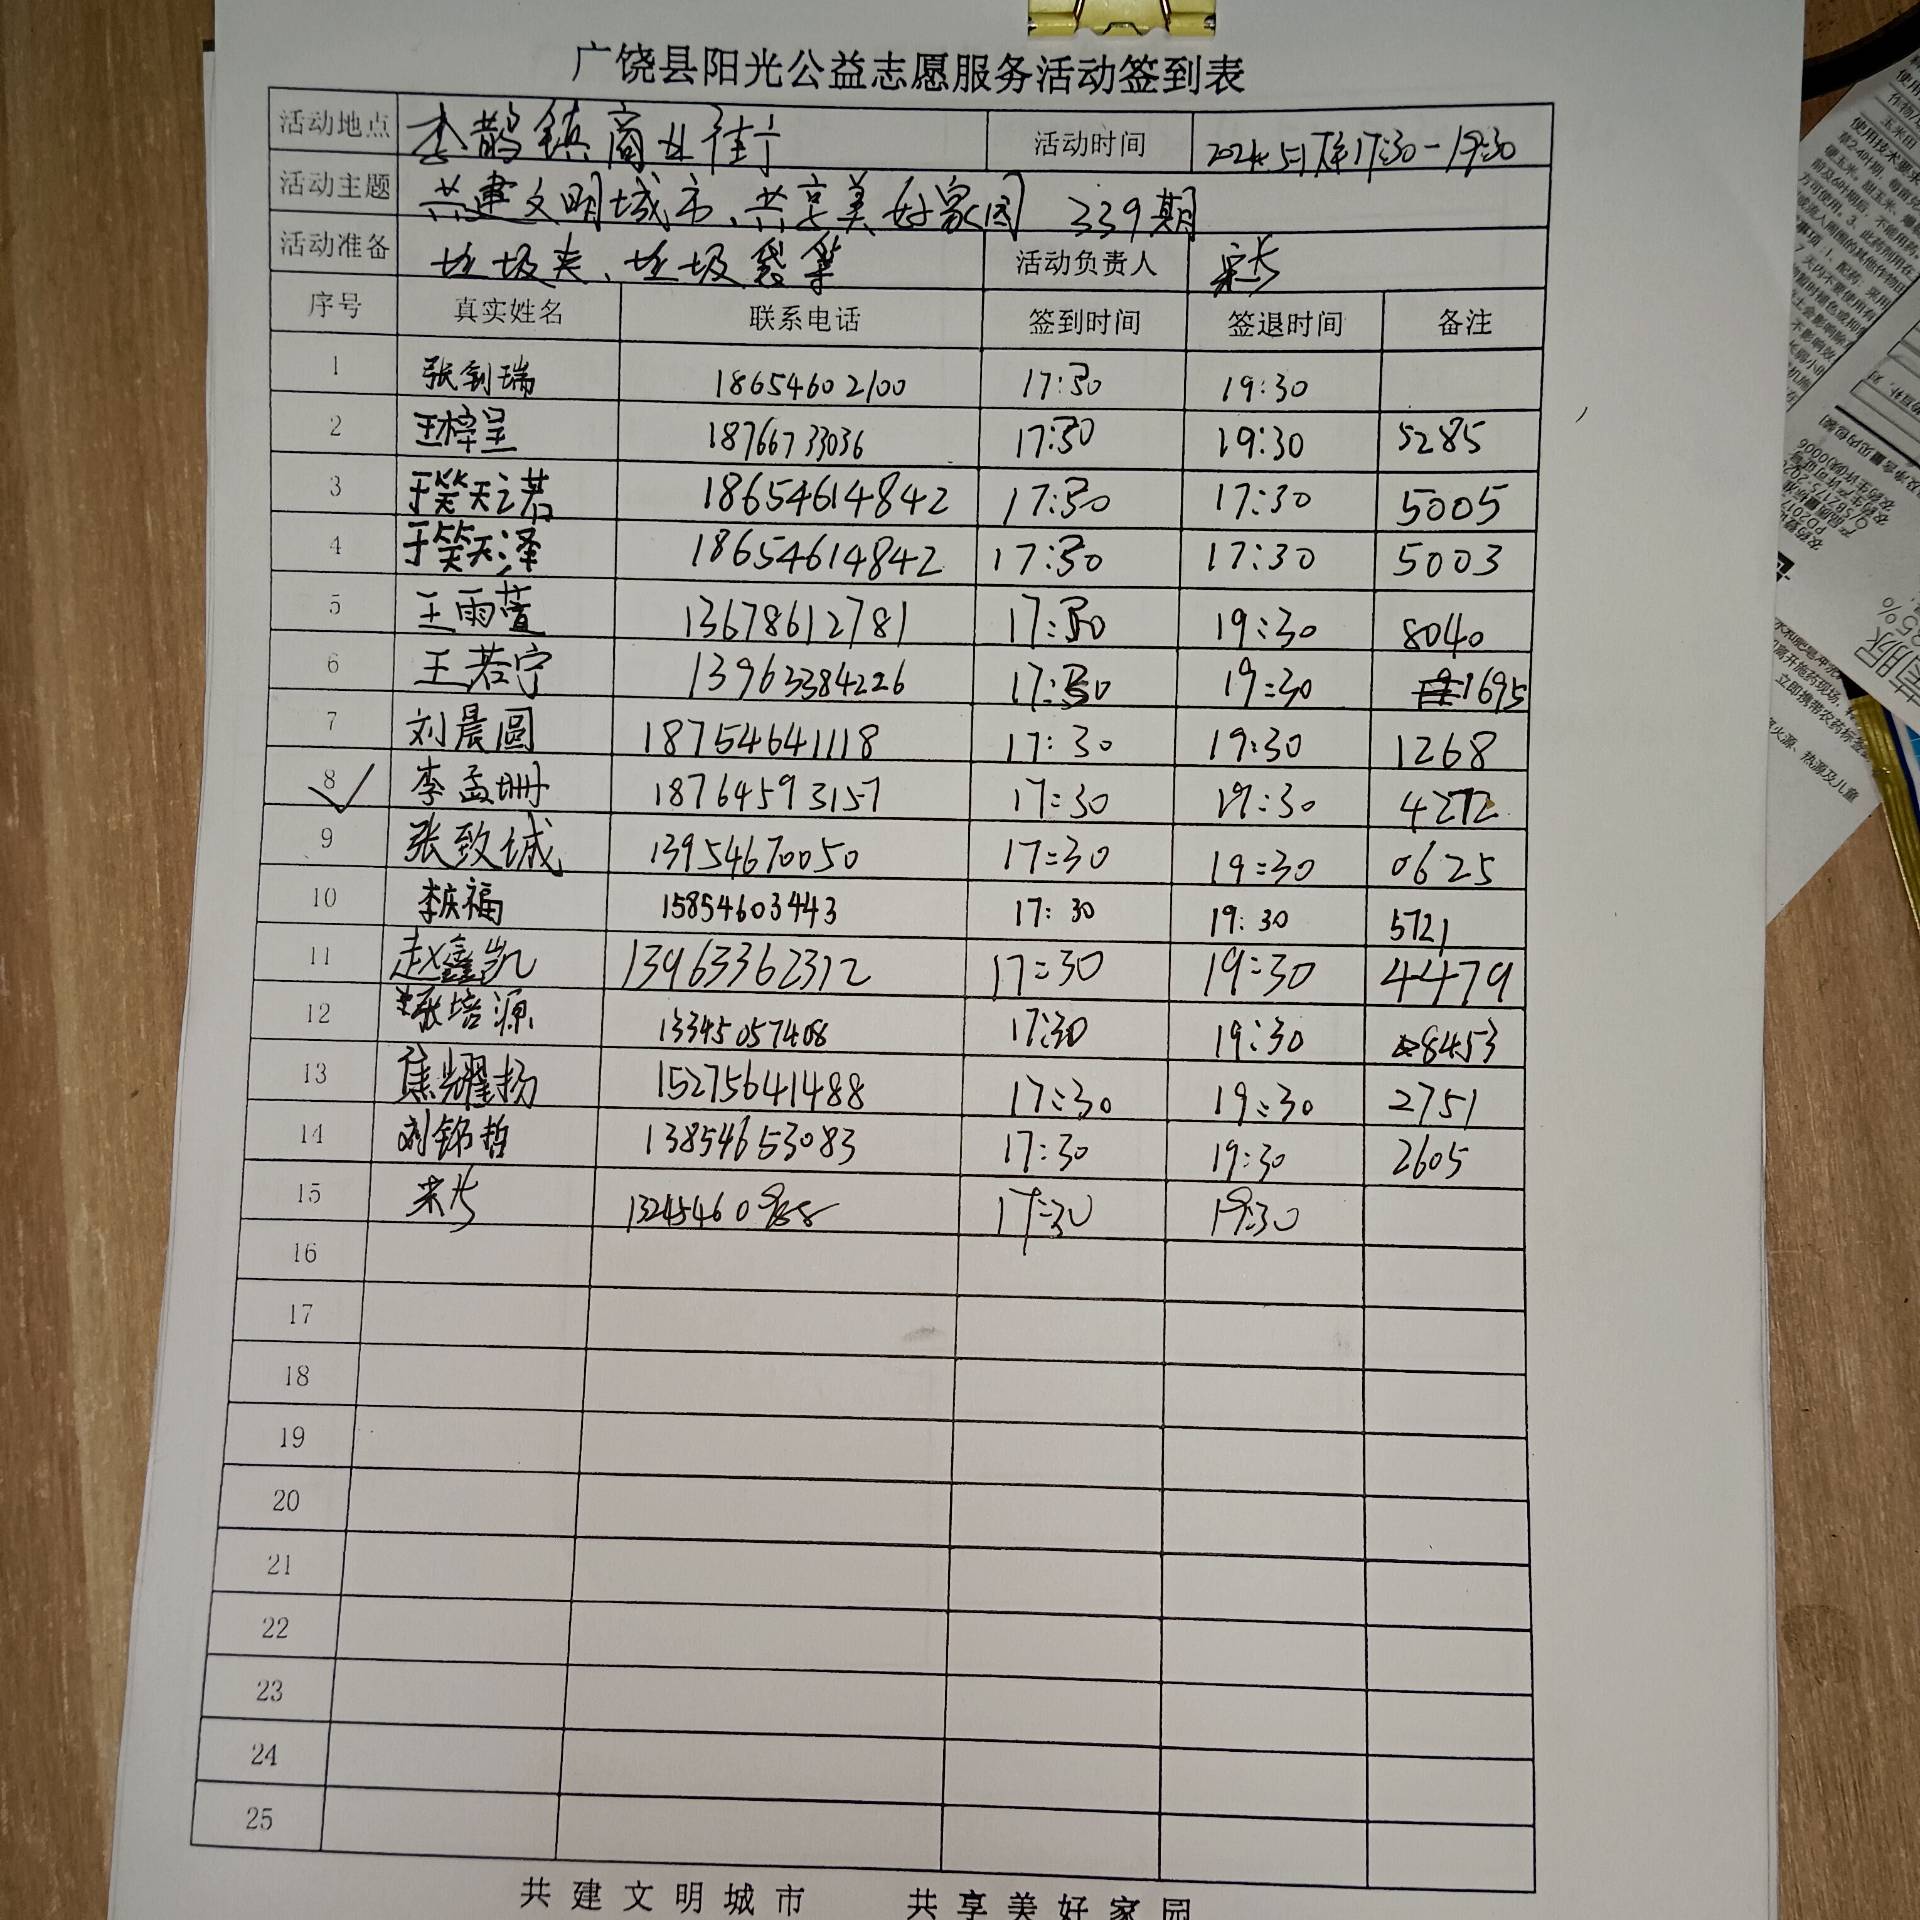 广饶县阳光公益志愿服务活动签到表
活动地点 李鹊镇商业街 活动时间 2024.5.1 下午17:30-19:30
活动主题 共建文明城市、共享美好家园 339期
活动准备 垃圾夹、垃圾袋等 活动负责人
序号 真实姓名 联系电话 签到时间 签退时间 备注
1 张钊瑞 18654602100 17:30 19:30
2 王梓呈 18766733036 17:30 19:30 5285
3 于笑天之若 18654614842 17:30 17:30 5005
4 于笑天泽 18654614842 17:30 17:30 5003
5 王雨萱 13678612781 17:30 19:30 8040
6 王若宁 13963384226 17:30 19:30 1695
7 刘晨圆 18754641118 17:30 19:30 1268
8 李孟珊 18764593157 17:30 19:30 4272
9 张致诚 13954670050 17:30 19:30 0625
10 李庆福 15854603443 17:30 19:30 5721
11 赵鑫凯 13963362312 17:30 19:30 4479
12 张培源 13345057408 17:30 19:30 8453
13 焦耀扬 15275641488 17:30 19:30 2751
14 刘铭哲 13854653083 17:30 19:30 2605
15 17:30 19:30
16
17
18
19
20
21
22
23
24
25
共建文明城市 共享美好家园